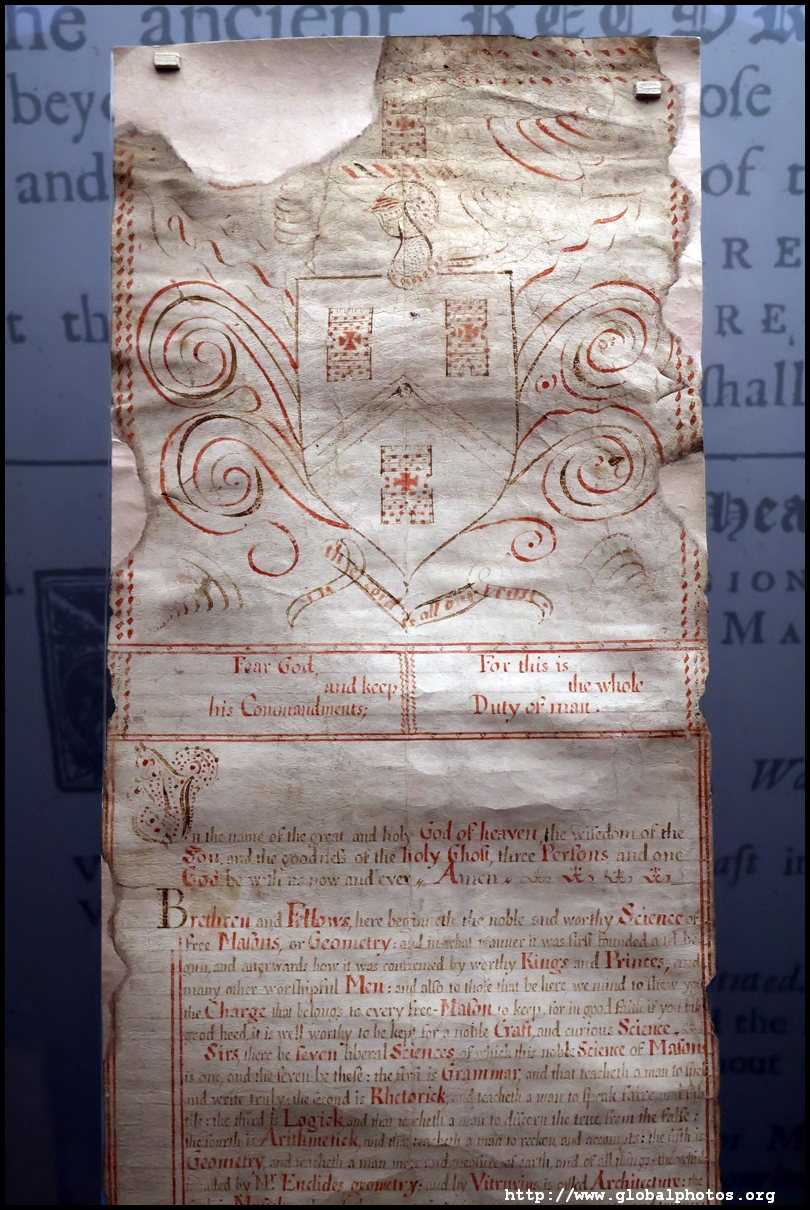 he ancient RECOR
beyo
ose
and
of t
RE
t th
RE,
shall
In the Lord is all our trust
Fear God,
and keep
his Commandments;
For this is
the whole
Duty of man.
In the name of the great and holy God of heaven, the wisedom of the
Son, and the goodness of the holy Ghost, three Persons and one
God be with us now and ever Amen
Brethren and Fellows, here beginneth the noble and worthy Science of
Free Masons, or Geometry: and in what manner it was first founded and be
gun, and afterwards how it was confirmed by worthy Kings and Princes, and
many other worshipful Men: and also to those that be here, we mind to shew you
the Charge that belongs to every free-Mason to keep, for in good faith if you take
good heed, it is well worthy to be kept for a noble Craft, and curious Science.
Sirs there be seven liberal Sciences, of which this noble Science of Masons
is one, and the seven be these: the first is Grammar, and that teacheth a man to speak
and write truly: the second is Rhetorick, and teacheth a man to speak faire and in
the third is Logick, and that teacheth a man to discern the true from the false:
the fourth is Arithmetick, and that teacheth a man to reckon, and accounts: the fifth is
Geometry, and teacheth a man mete and measure of earth, and of all things: the
is called by Mr. Euclides geometry: and by Vitruvius is called Architecture: the
Hea
SION
MA
aft in
the
hout
http://www.globalphotos.org